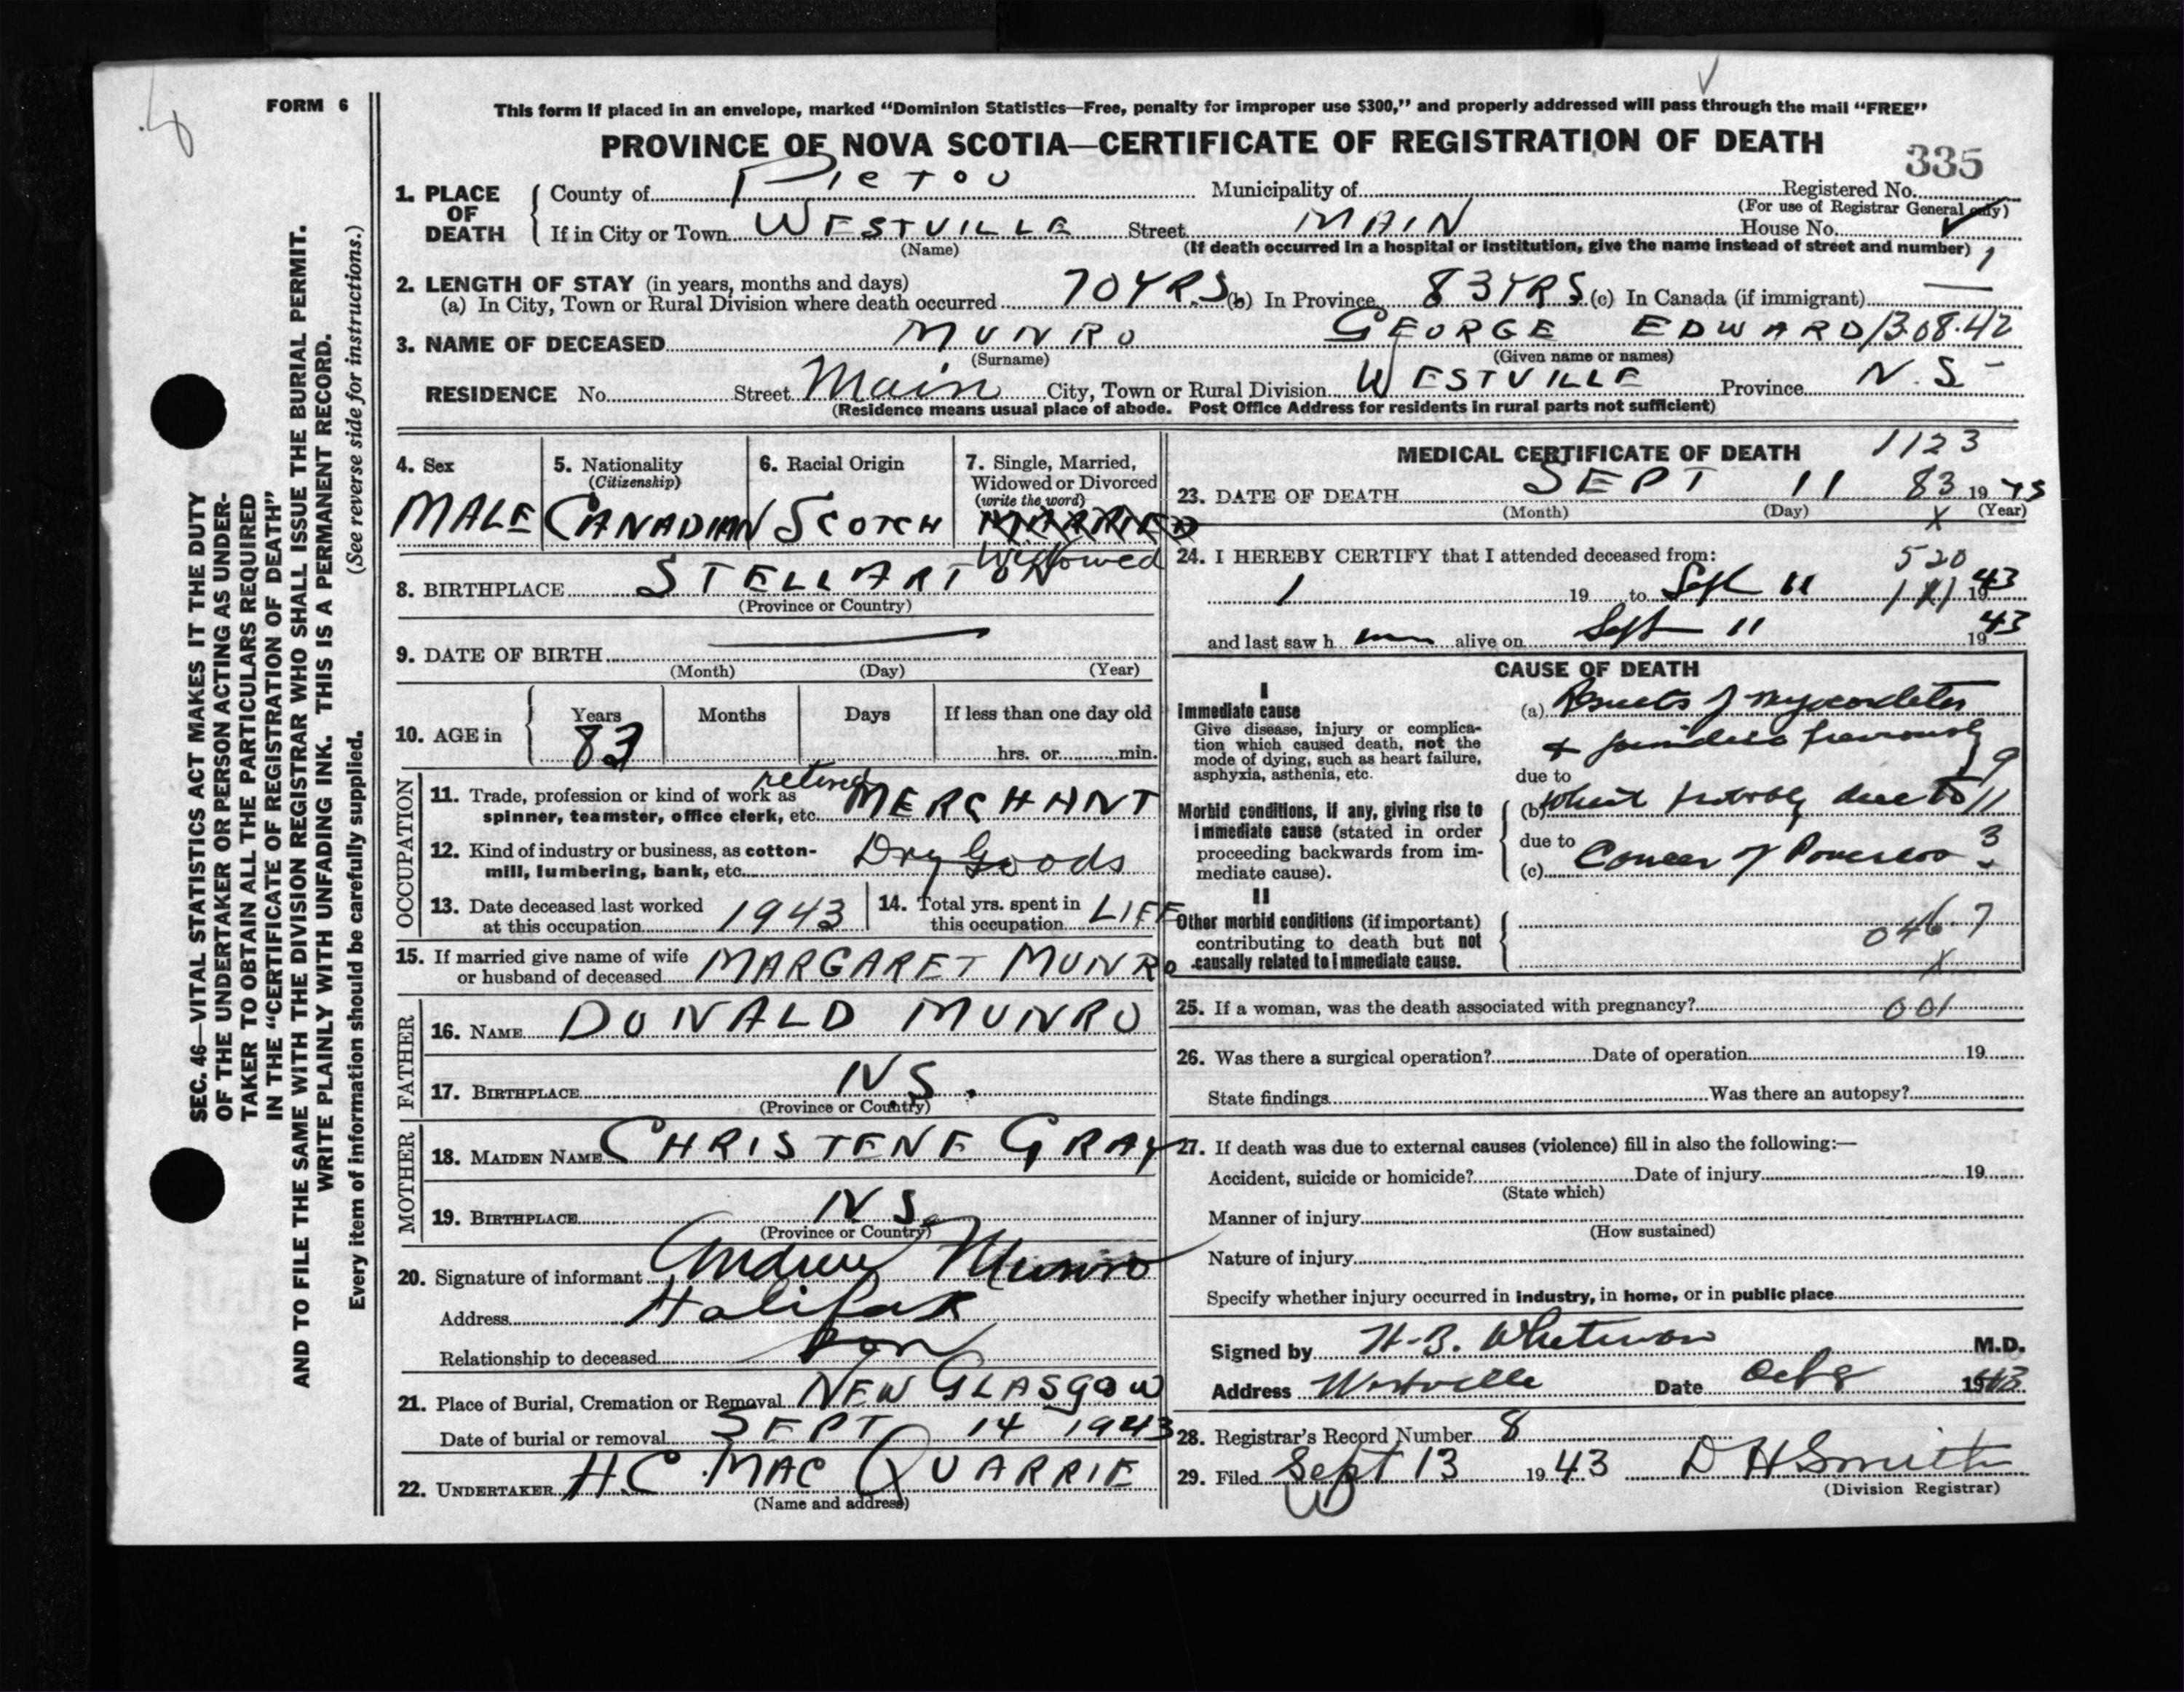 FORM 6
This form if placed in an envelope, marked “Dominion Statistics—Free, penalty for improper use $300,” and properly addressed will pass through the mail “FREE”
PROVINCE OF NOVA SCOTIA—CERTIFICATE OF REGISTRATION OF DEATH
335
1. PLACE OF DEATH
County of PICTOU Municipality of Registered No.
(For use of Registrar General only)
If in City or Town WESTVILLE Street MAIN House No.
(Name)
(If death occurred in a hospital or institution, give the name instead of street and number) 1
2. LENGTH OF STAY (in years, months and days)
(a) In City, Town or Rural Division where death occurred 70 YRS (b) In Province 83 YRS (c) In Canada (if immigrant) —
3. NAME OF DECEASED MUNRO GEORGE EDWARD 1308.42
(Surname) (Given name or names)
RESIDENCE No. Street Main City, Town or Rural Division WESTVILLE Province N.S.
(Residence means usual place of abode. Post Office Address for residents in rural parts not sufficient)
4. Sex
MALE
5. Nationality
(Citizenship)
CANADIAN
6. Racial Origin
SCOTCH
7. Single, Married,
Widowed or Divorced
(write the word)
MARRIED
Widowed
8. BIRTHPLACE STELLARTON
(Province or Country)
9. DATE OF BIRTH
(Month) (Day) (Year)
10. AGE in
Years Months Days If less than one day old
83 hrs. or min.
OCCUPATION
11. Trade, profession or kind of work as
spinner, teamster, office clerk, etc. retired MERCHANT
12. Kind of industry or business, as cotton-
mill, lumbering, bank, etc. Dry Goods
13. Date deceased last worked
at this occupation 1943
14. Total yrs. spent in
this occupation LIFE
15. If married give name of wife
or husband of deceased MARGARET MUNRO
FATHER
16. NAME DONALD MUNRO
17. BIRTHPLACE N.S.
(Province or Country)
MOTHER
18. MAIDEN NAME CHRISTENE GRAY
19. BIRTHPLACE N S.
(Province or Country)
20. Signature of informant Andrew Munro
Address Halifax
Relationship to deceased Son
21. Place of Burial, Cremation or Removal NEW GLASGOW
Date of burial or removal SEPT 14 1943
22. UNDERTAKER H.C. MAC QUARRIE
(Name and address)
MEDICAL CERTIFICATE OF DEATH 1123
23. DATE OF DEATH SEPT 11 83 19 43
(Month) (Day) X (Year)
24. I HEREBY CERTIFY that I attended deceased from: 520
1 19 to Sept 11 1943
and last saw h im alive on Sept 11 1943
CAUSE OF DEATH
I
Immediate cause
Give disease, injury or complica-
tion which caused death, not the
mode of dying, such as heart failure,
asphyxia, asthenia, etc.
(a) Results of myocarditis
& jaundice previously
due to 9
Morbid conditions, if any, giving rise to
immediate cause (stated in order
proceeding backwards from im-
mediate cause).
(b) which probably due to 11
due to 3
(c) Cancer of Pancreas
II
Other morbid conditions (if important)
contributing to death but not
causally related to immediate cause.
046.7
X
25. If a woman, was the death associated with pregnancy? 001
26. Was there a surgical operation? Date of operation 19
State findings Was there an autopsy?
27. If death was due to external causes (violence) fill in also the following:—
Accident, suicide or homicide? Date of injury 19
(State which)
Manner of injury
(How sustained)
Nature of injury
Specify whether injury occurred in industry, in home, or in public place
Signed by H.B. Whitman M.D.
Address Westville Date Oct 8 1943
28. Registrar's Record Number 8
29. Filed Sept 13 1943 D H Smith
(Division Registrar)
SEC. 46—VITAL STATISTICS ACT MAKES IT THE DUTY
OF THE UNDERTAKER OR PERSON ACTING AS UNDER-
TAKER TO OBTAIN ALL THE PARTICULARS REQUIRED
IN THE “CERTIFICATE OF REGISTRATION OF DEATH”
AND TO FILE THE SAME WITH THE DIVISION REGISTRAR WHO SHALL ISSUE THE BURIAL PERMIT.
WRITE PLAINLY WITH UNFADING INK. THIS IS A PERMANENT RECORD.
Every item of information should be carefully supplied. (See reverse side for instructions.)